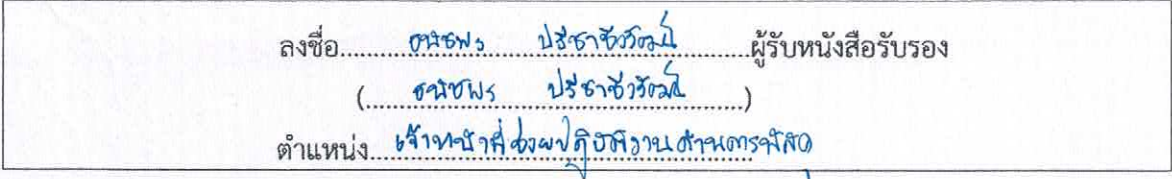 ลงชื่อ ธนัชพร ปรีชาชีววัฒน์ ผู้รับหนังสือรับรอง
( ธนัชพร ปรีชาชีววัฒน์ )
ตำแหน่ง เจ้าหน้าที่ช่วยปฏิบัติงานด้านการพัสดุ